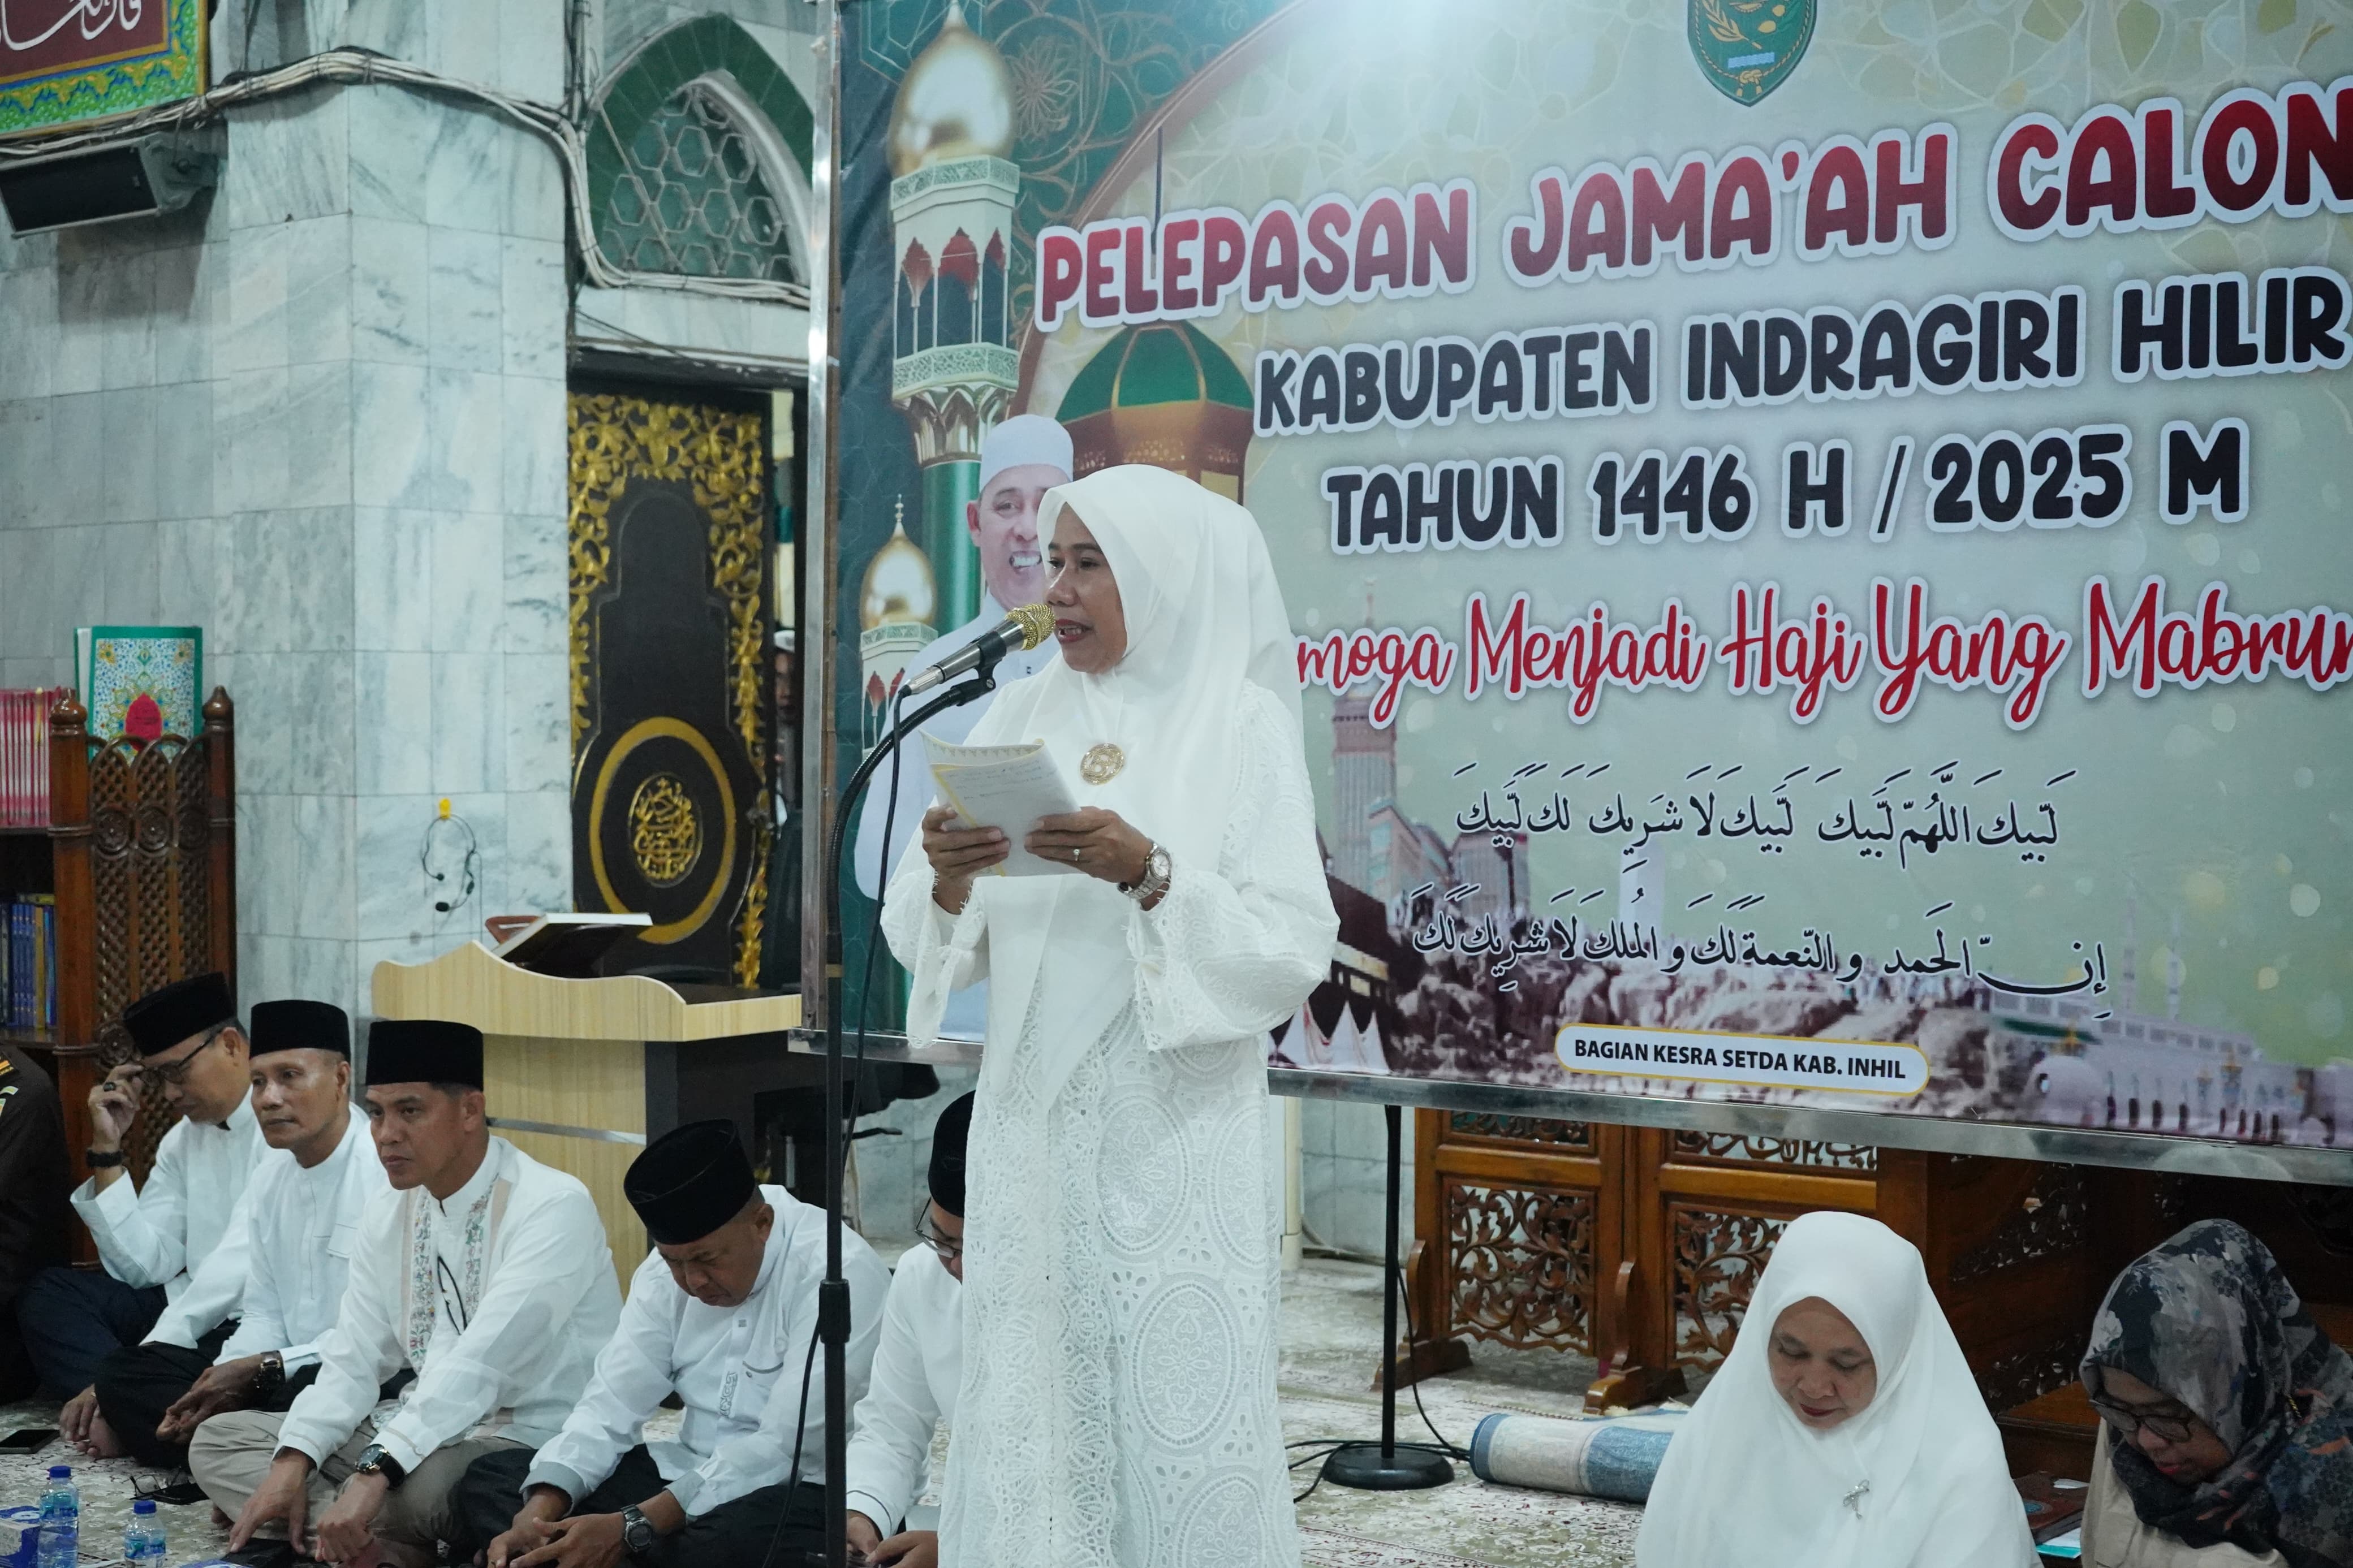 PELEPASAN JAMA'AH CALON
KABUPATEN INDRAGIRI HILIR
TAHUN 1446 H / 2025 M
moga Menjadi Haji Yang Mabrur
لَبَّيكَ اللَّهُمّ لَبَّيكَ لَبَّيكَ لَا شَرِيكَ لَكَ لَبَّيكَ
إِنّ الحَمدَ والنّعمةَ لَكَ والمُلكَ لَا شَرِيكَ لَكَ
BAGIAN KESRA SETDA KAB. INHIL